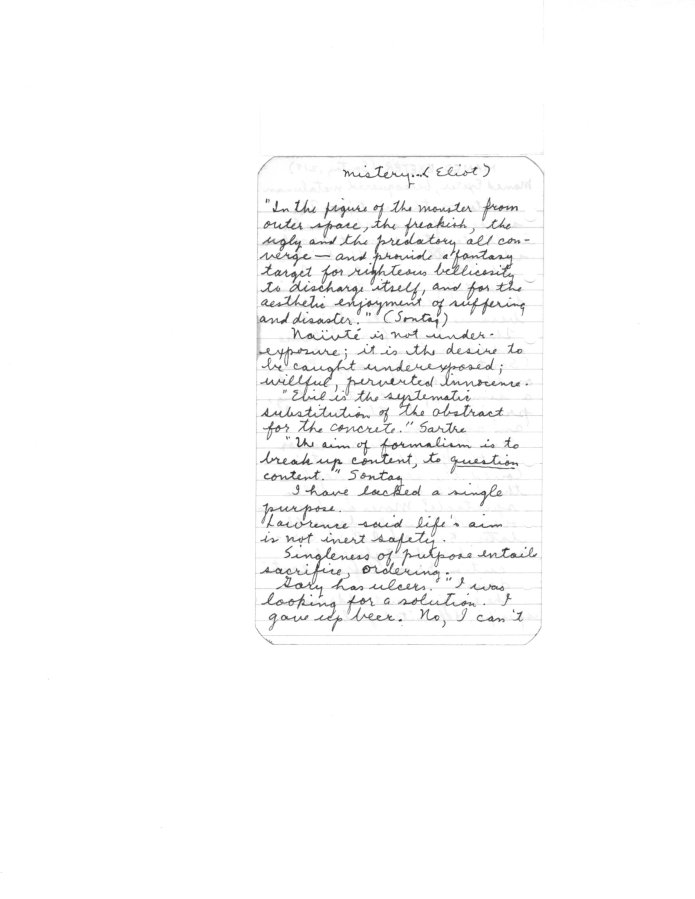 mistery. (Eliot)
"In the figure of the monster from
outer space, the freakish, the
ugly and the predatory all con-
verge — and provide a fantasy
target for righteous bellicosity
to discharge itself, and for the
aesthetic enjoyment of suffering
and disaster." (Sontag)
Naïveté is not under-
exposure; it is the desire to
be caught underexposed;
willful, perverted innocence.
"Evil is the systematic
substitution of the abstract
for the concrete." Sartre
"The aim of formalism is to
break up content, to question
content." Sontag
I have lacked a single
purpose.
Lawrence said life's aim
is not inert safety.
Singleness of purpose entails
sacrifice, ordering.
Gary has ulcers. "I was
looking for a solution. I
gave up beer. No, I can't